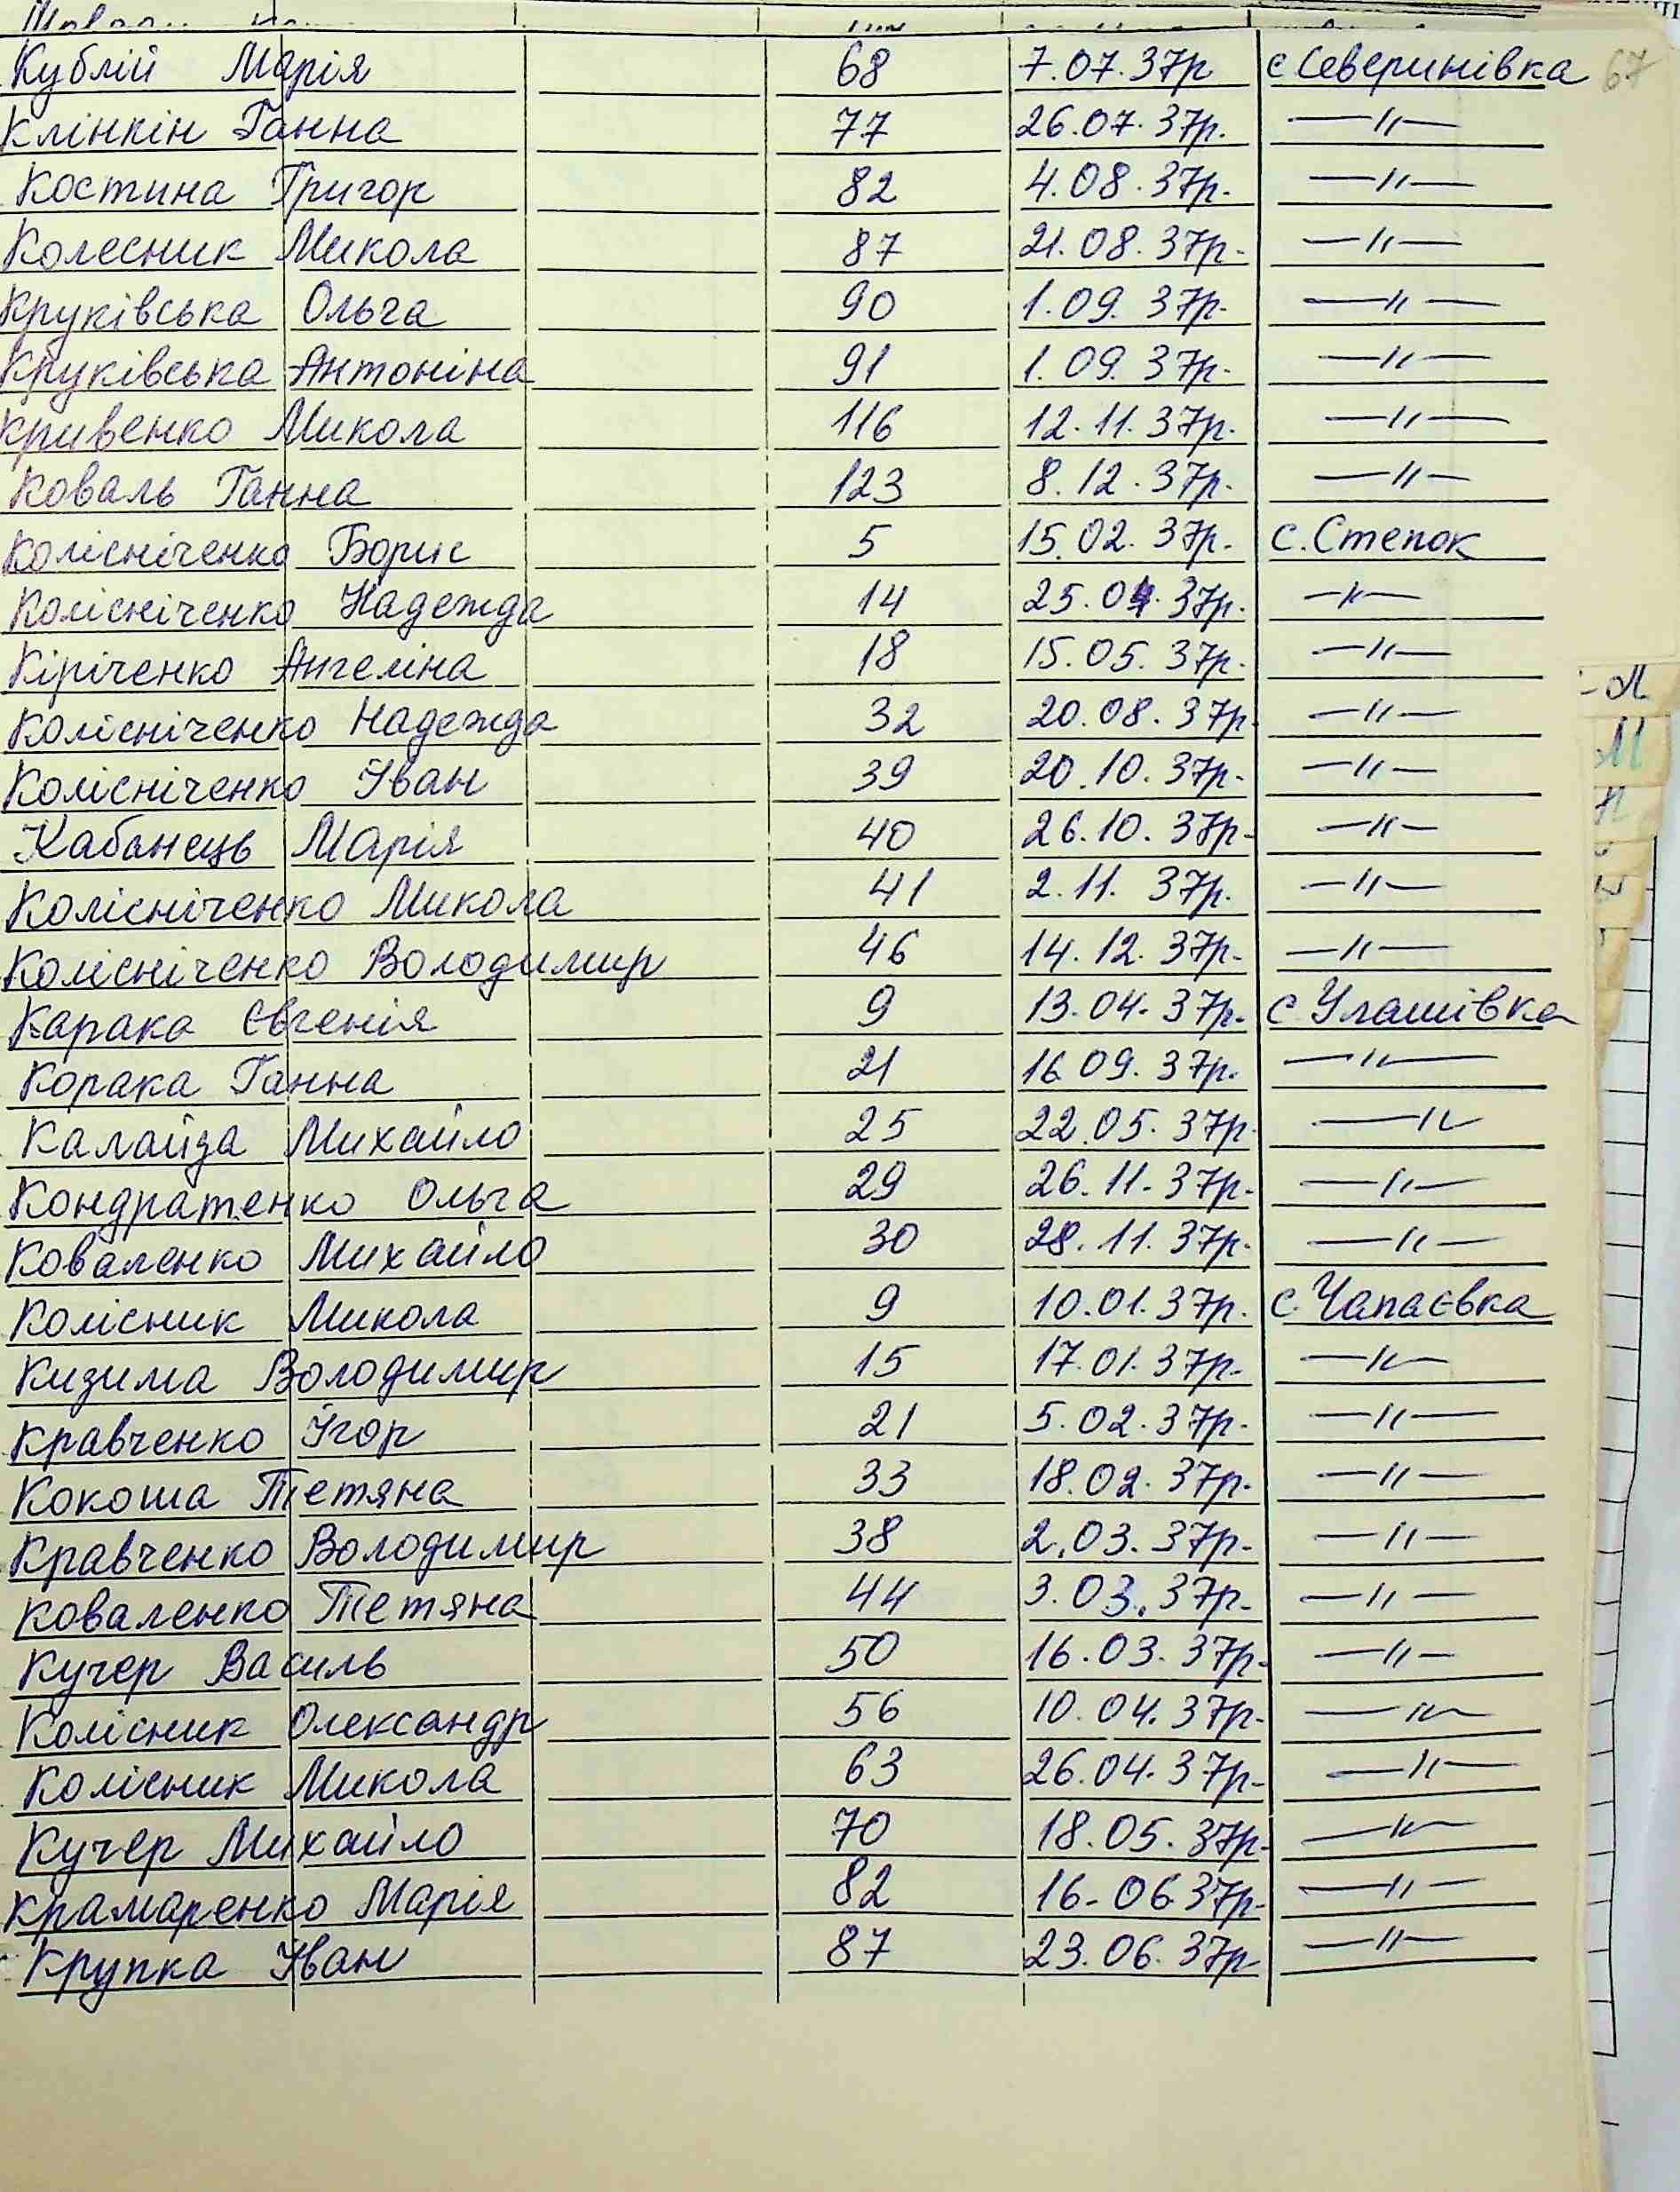 Кублій Марія 68 7.07.37р с Северинівка 67
Клінкін Ганна 77 26.07.37р. —〃—
Костина Григор 82 4.08.37р. —〃—
Колесник Микола 87 21.08.37р. —〃—
Круківська Ольга 90 1.09.37р. —〃—
Круківська Антоніна 91 1.09.37р. —〃—
Кривенко Микола 116 12.11.37р. —〃—
Коваль Ганна 123 8.12.37р. —〃—
Колісніченко Борис 5 15.02.37р. с.Степок
Колісніченко Надежда 14 25.04.37р. —〃—
Кіріченко Ангеліна 18 15.05.37р. —〃—
Колісніченко Надежда 32 20.08.37р —〃—
Колісніченко Іван 39 20.10.37р. —〃—
Кабанець Марія 40 26.10.37р. —〃—
Колісніченко Микола 41 2.11.37р. —〃—
Колісніченко Володимир 46 14.12.37р. —〃—
Карака Євгенія 9 13.04.37р. с Улашівка
Корака Ганна 21 16 09.37р. —〃—
Калайда Михайло 25 22.05.37р —〃
Кондратенко Ольга 29 26.11.37р. —〃—
Коваленко Михайло 30 28.11.37р. —〃—
Колісник Микола 9 10.01.37р. с.Чапаєвка
Кизима Володимир 15 17.01.37р. —〃—
Кравченко Ігор 21 5.02.37р. —〃—
Кокоша Тетяна 33 18.02.37р. —〃—
Кравченко Володимир 38 2.03.37р. —〃—
Коваленко Тетяна 44 3.03.37р. —〃—
Кучер Василь 50 16.03.37р. —〃—
Колісник Олександр 56 10.04.37р. —〃—
Колісник Микола 63 26.04.37р. —〃—
Кучер Михайло 70 18.05.37р. —〃—
Крамаренко Марія 82 16.06 37р. —〃—
Крупка Іван 87 23.06.37р —〃—